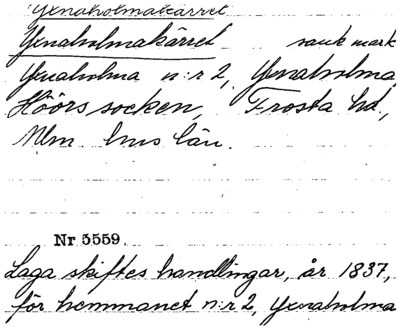 Yxnaholmakärret
Yxnaholmakärret sank mark
Yxnaholma n:r 2, Yxnaholma
Höörs socken, Frosta hd,
Mlm. hus län.
Nr 5559.
Laga skiftes handlingar, år 1837,
för hemmanet n:r 2, Yxnaholma